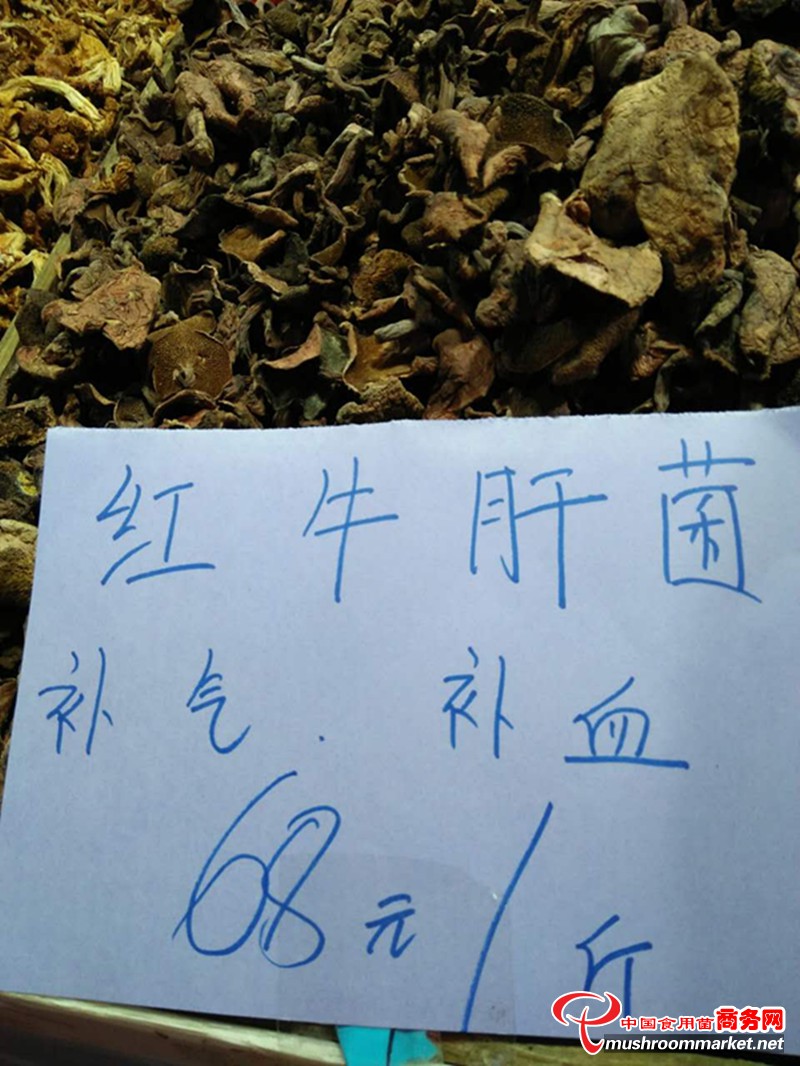 红牛肝菌
补气.补血
68元/斤
中国食用菌商务网
mushroommarket.net